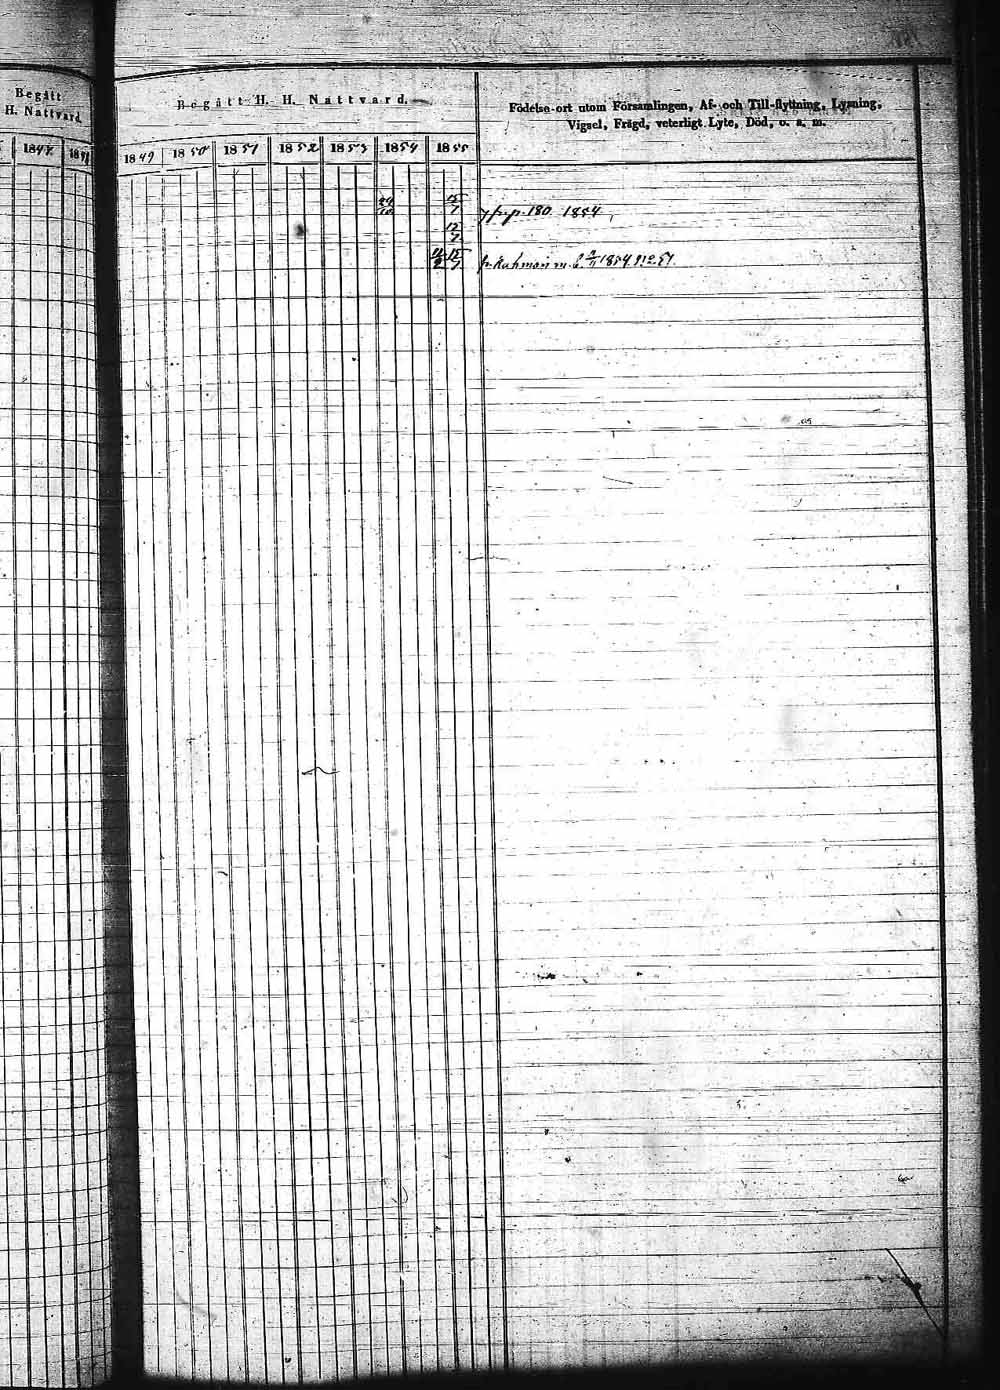 Begått
H. Nattvard.
1847 1848
Begått H. H. Nattvard.
1849 1850 1851 1852 1853 1854 1855
Födelse-ort utom Församlingen, Af- och Till-flyttning, Lysning,
Vigsel, Frägd, veterligt Lyte, Död, o. s. m.
12/7 fr. p. 180 1854
12/7
12/7 1854 No 57